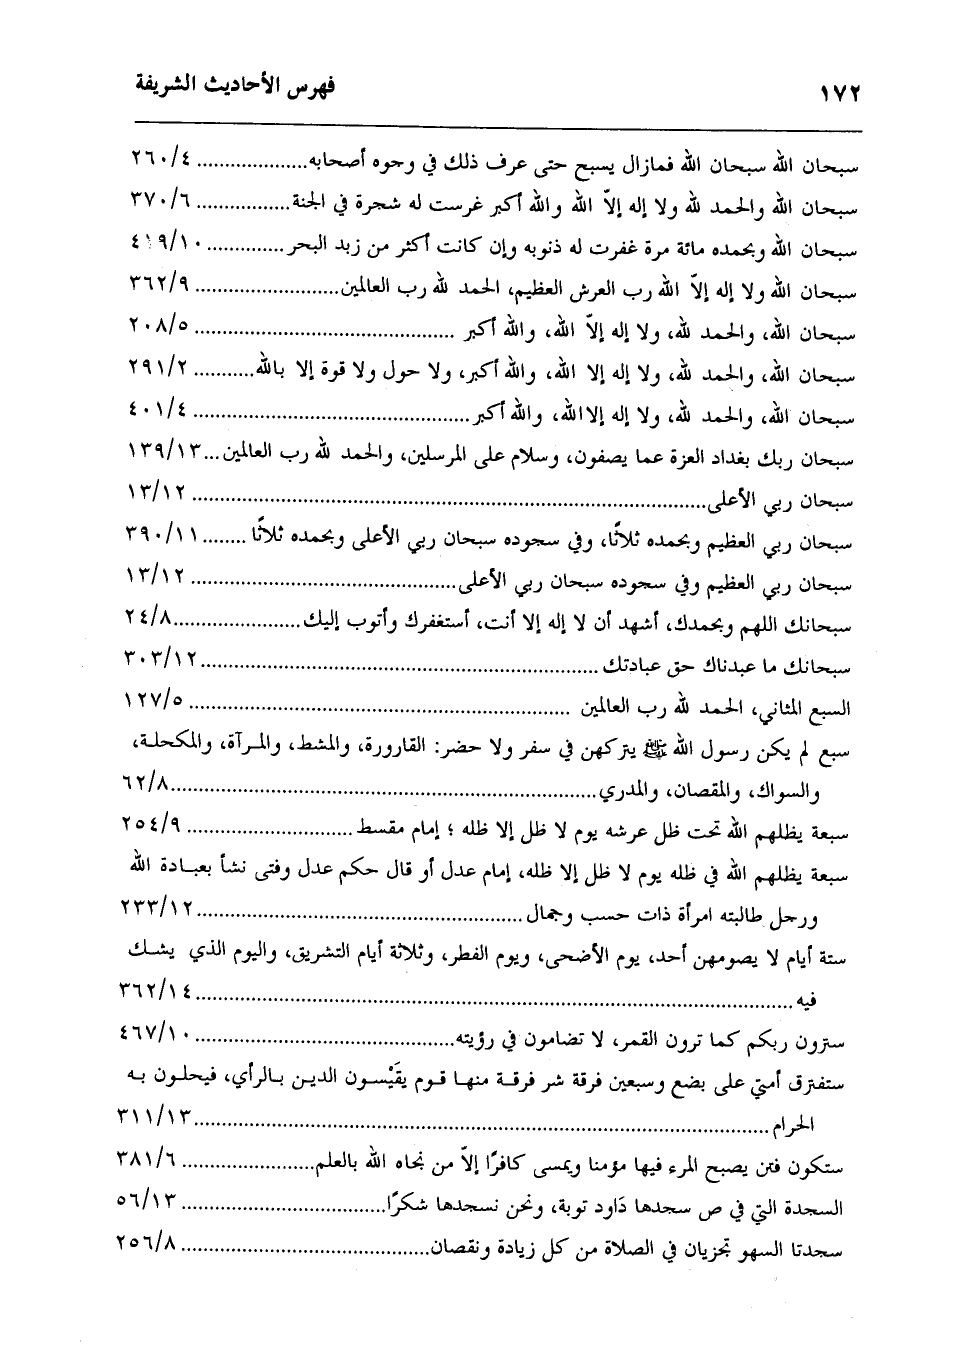 ١٧٢ فهرس الأحاديث الشريفة
سبحان الله سبحان الله فمازال يسبح حتى عرف ذلك في وجوه أصحابه.................... ٢٦٠/٤
سبحان الله والحمد لله ولا إله إلاّ الله والله أكبر غرست له شجرة في الجنة................. ٣٧٠/٦
سبحان الله وبحمده مائة مرة غفرت له ذنوبه وإن كانت أكثر من زبد البحر.............. ٤١٩/١٠
سبحان الله ولا إله إلاّ الله رب العرش العظيم، الحمد لله رب العالمين.......................... ٣٦٢/٩
سبحان الله، والحمد لله، ولا إله إلاّ الله، والله أكبر ................................................ ٢٠٨/٥
سبحان الله، والحمد لله، ولا إله إلا الله، والله أكبر، ولا حول ولا قوة إلا بالله........... ٢٩١/٢
سبحان الله، والحمد لله، ولا إله إلا الله، والله أكبر.................................................. ٤٠١/٤
سبحان ربك بغداد العزة عما يصفون، وسلام على المرسلين، والحمد لله رب العالمين... ١٣٩/١٣
سبحان ربي الأعلى.................................................................................... ١٣/١٢
سبحان ربي العظيم وبحمده ثلاثًا، وفي سجوده سبحان ربي الأعلى وبحمده ثلاثًا ........ ٣٩٠/١١
سبحان ربي العظيم وفي سجوده سبحان ربي الأعلى............................................. ١٣/١٢
سبحانك اللهم وبحمدك، أشهد أن لا إله إلا أنت، أستغفرك وأتوب إليك..................... ٢٤/٨
سبحانك ما عبدناك حق عبادتك ................................................................. ٣٠٣/١٢
السبع المثاني، الحمد لله رب العالمين ............................................................ ١٢٧/٥
سبع لم يكن رسول الله ﷺ يتركهن في سفر ولا حضر: القارورة، والمشط، والمرآة، والمكحلة،
والسواك، والمقصان، والمدري...................................................................... ٦٢/٨
سبعة يظلهم الله تحت ظل عرشه يوم لا ظل إلا ظله ؛ إمام مقسط............................ ٢٥٤/٩
سبعة يظلهم الله في ظله يوم لا ظل إلا ظله، إمام عدل أو قال حكم عدل وفتى نشأ بعبادة الله
ورجل طالبته امرأة ذات حسب وجمال....................................................... ٢٣٣/١٢
ستة أيام لا يصومهن أحد، يوم الأضحى، ويوم الفطر، وثلاثة أيام التشريق، واليوم الذي يشك
فيه.................................................................................................. ٣٦٢/١٤
سترون ربكم كما ترون القمر، لا تضامون في رؤيته............................................. ٤٦٧/١٠
ستفترق أمتي على بضع وسبعين فرقة شر فرقة منها قوم يقَيْسون الدين بالرأي، فيحلون به
الحرام.............................................................................................. ٣١١/١٣
ستكون فتن يصبح المرء فيها مؤمنا ويمسى كافرًا إلاّ من نجاه الله بالعلم...................... ٣٨١/٦
السجدة التي في ص سجدها دَاود توبة، ونحن نسجدها شكرًا.................................. ٥٦/١٣
سجدتا السهو تجزيان في الصلاة من كل زيادة ونقصان.......................................... ٢٥٦/٨